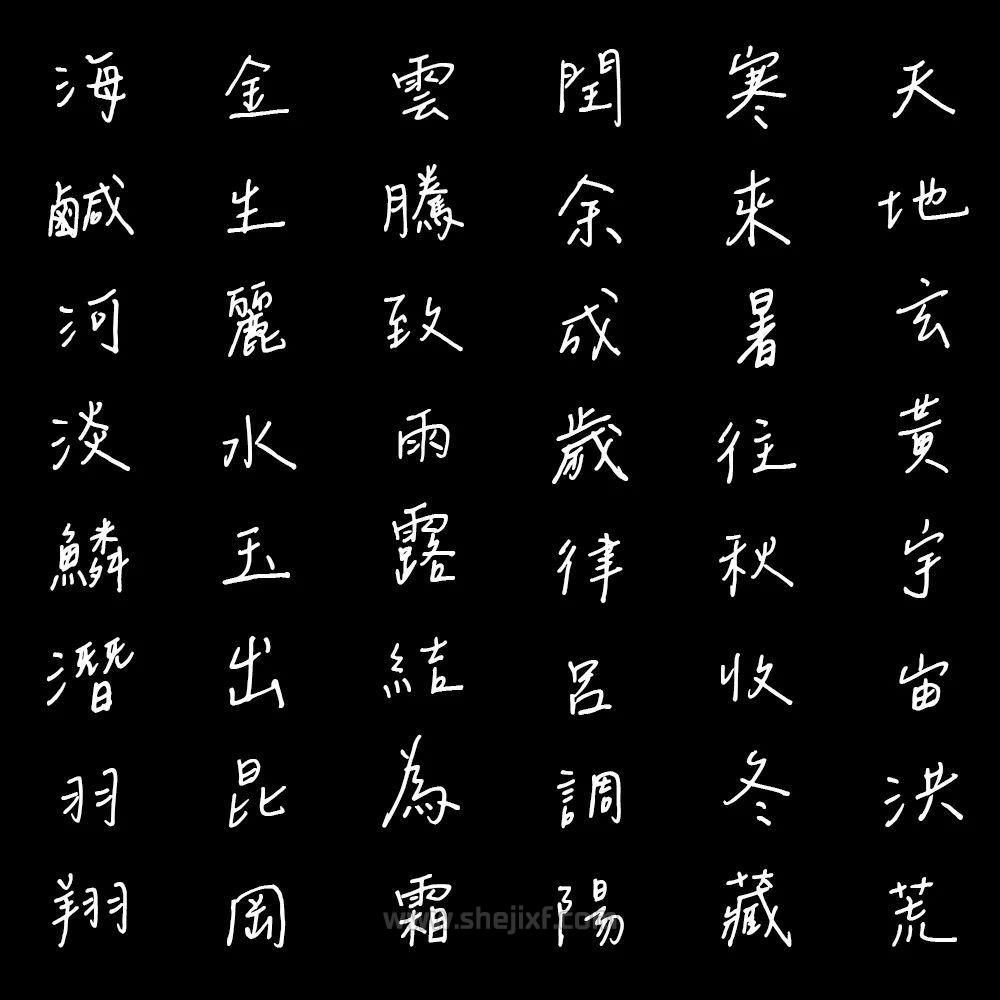 天地玄黃宇宙洪荒
寒來暑往秋收冬藏
閏余成歲律呂調陽
雲騰致雨露結為霜
金生麗水玉出昆岡
海鹹河淡鱗潛羽翔
www.shejixf.com